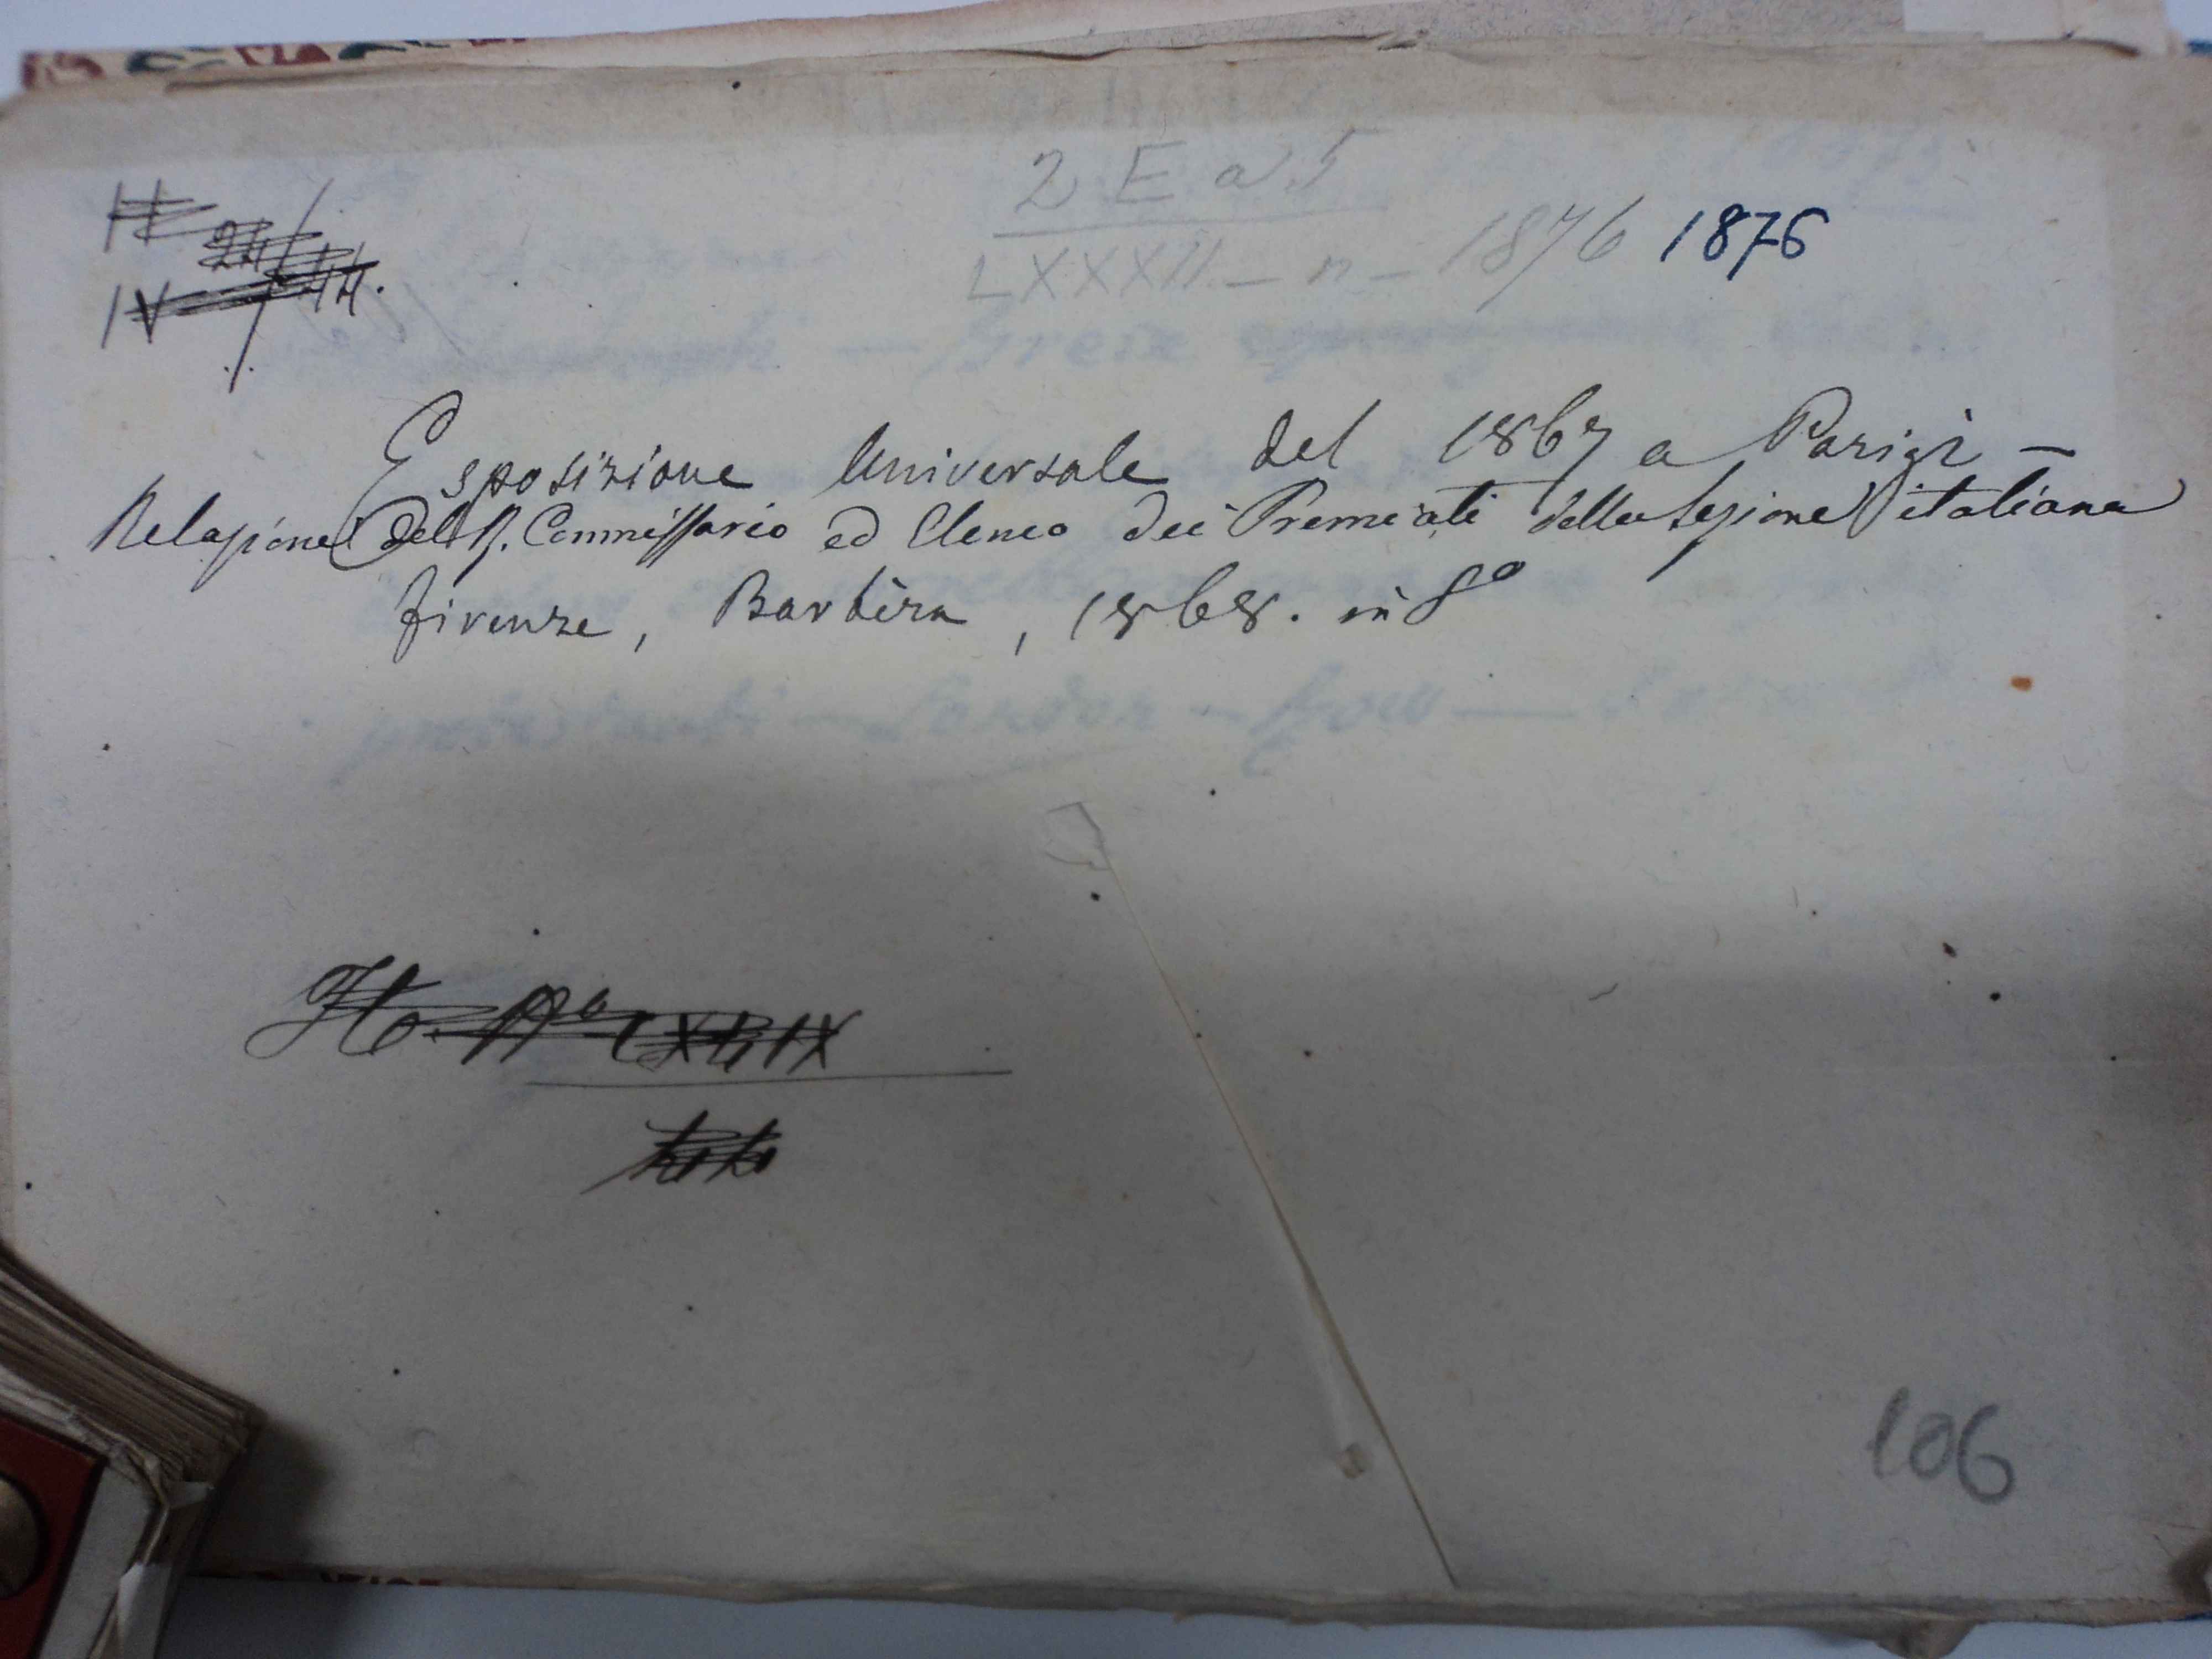 2 E a 5
LXXXII - n - 1876 1876
Esposizione Universale del 1867 a Parigi -
Relazione del R. Commissario ed Elenco dei Premiati della sezione italiana
Firenze, Barbèra, 1868. in 8º
106